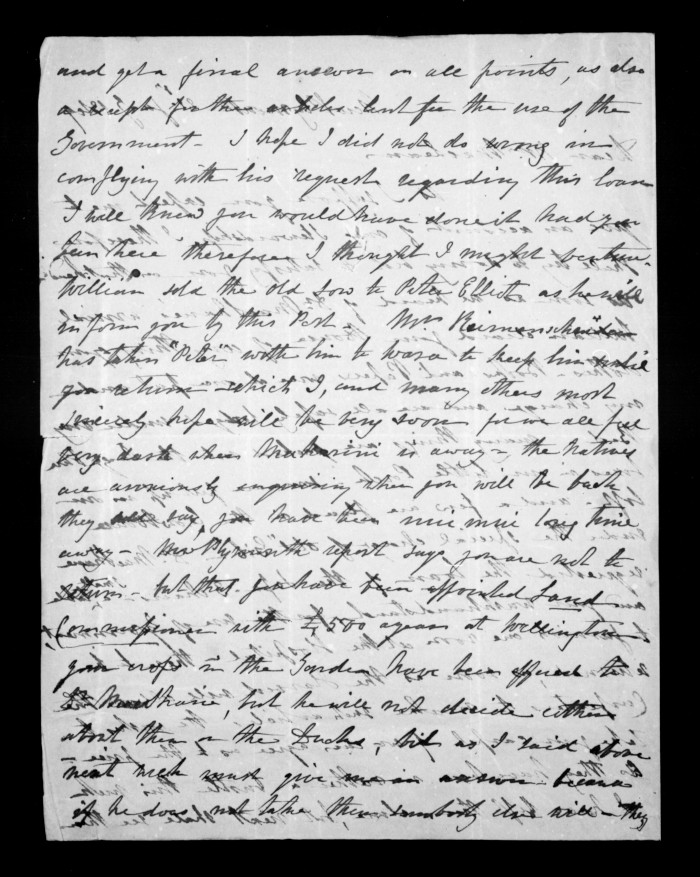 and get a final answer on all points, as also
a receipt for the articles lent for the use of the
Government - I hope I did not do wrong in
complying with his request regarding this loan
I well knew you would have done it had you
been here therefore I thought I might venture -
William sold the old Sow to Peter Elliot as he will
inform you by this Post - Mr Reimenschneider
has taken "Peter" with him to Warea to keep him until
you return - which I, and many others most
sincerely hope will be very soon for we all feel
very dark when Makarini is away - the Natives
are anxiously enquiring when you will be back
they all say, you have been nui nui long time
away - New Plymouth report says you are not to
return - but that you have been appointed Land
Commissioner with £500 a year at Wellington
your crops in the Garden have been offered to
Dr , but he will not decide either
about them or the Ducks, but as I said above
next week must give me an answer because
if he does not take them somebody else will - they